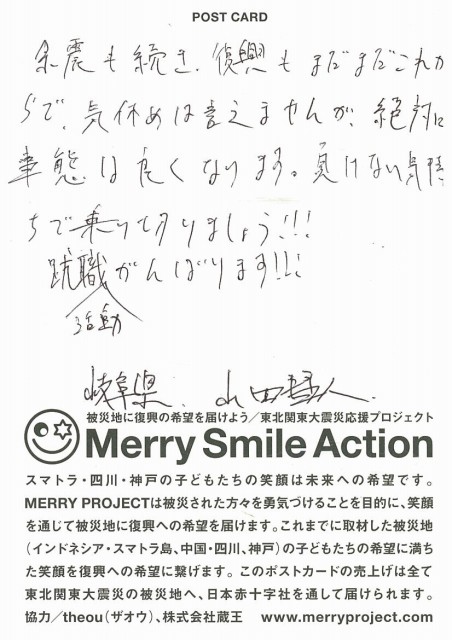 POST CARD
余震も続き、復興もまだまだこれか
らで、気休めは言えませんが、絶対に
事態は良くなります。負けない気持
ちで乗り切りましょう!!!
就職がんばります!!!
活動
岐阜県、山田
被災地に復興の希望を届けよう/東北関東大震災応援プロジェクト
Merry Smile Action
スマトラ・四川・神戸の子どもたちの笑顔は未来への希望です。
MERRY PROJECTは被災された方々を勇気づけることを目的に、笑顔
を通じて被災地に復興への希望を届けます。これまでに取材した被災地
(インドネシア・スマトラ島、中国・四川、神戸)の子どもたちの希望に満ち
た笑顔を復興への希望に繋げます。このポストカードの売上げは全て
東北関東大震災の被災地へ、日本赤十字社を通して届けられます。
協力/theou(ザオウ)、株式会社蔵王 www.merryproject.com